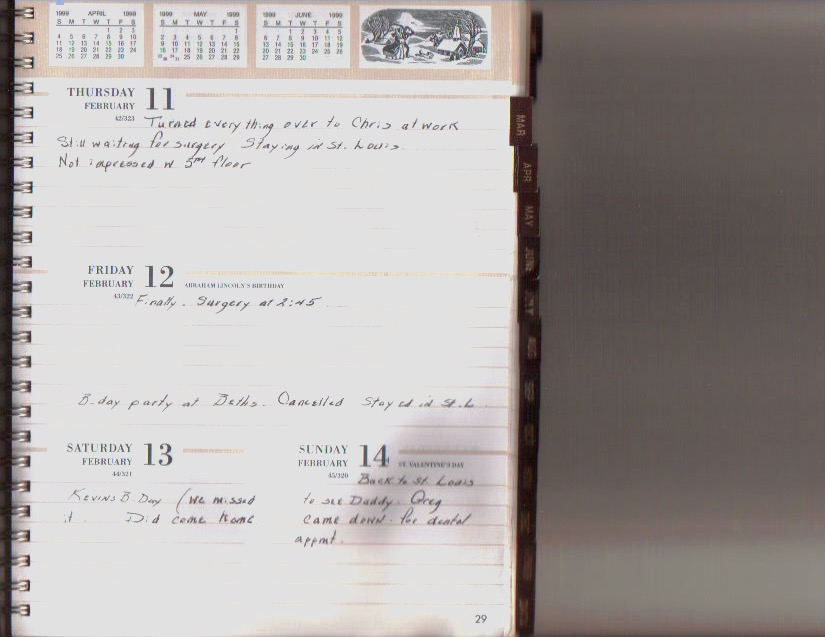 1999 APRIL 1999
S M T W T F S
1 2 3
4 5 6 7 8 9 10
11 12 13 14 15 16 17
18 19 20 21 22 23 24
25 26 27 28 29 30
1999 MAY 1999
S M T W T F S
1
2 3 4 5 6 7 8
9 10 11 12 13 14 15
16 17 18 19 20 21 22
23 30 24 31 25 26 27 28 29
1999 JUNE 1999
S M T W T F S
1 2 3 4 5
6 7 8 9 10 11 12
13 14 15 16 17 18 19
20 21 22 23 24 25 26
27 28 29 30
THURSDAY 11
FEBRUARY
42/323
Turned everything over to Chris at work
Still waiting for surgery Staying in St. Louis.
Not impressed w 5th floor
FRIDAY 12
FEBRUARY ABRAHAM LINCOLN'S BIRTHDAY
43/322
Finally. Surgery at 2:45
B-day party at Beths. Cancelled Stayed in St. L.
SATURDAY 13
FEBRUARY
44/321
Kevins B Day (we missed
it. Did come home
SUNDAY 14
FEBRUARY ST. VALENTINE'S DAY
45/320
Back to St. Louis
to see Daddy. Greg
came down for dental
appmt.
29
MAR
APR
MAY
JUNE